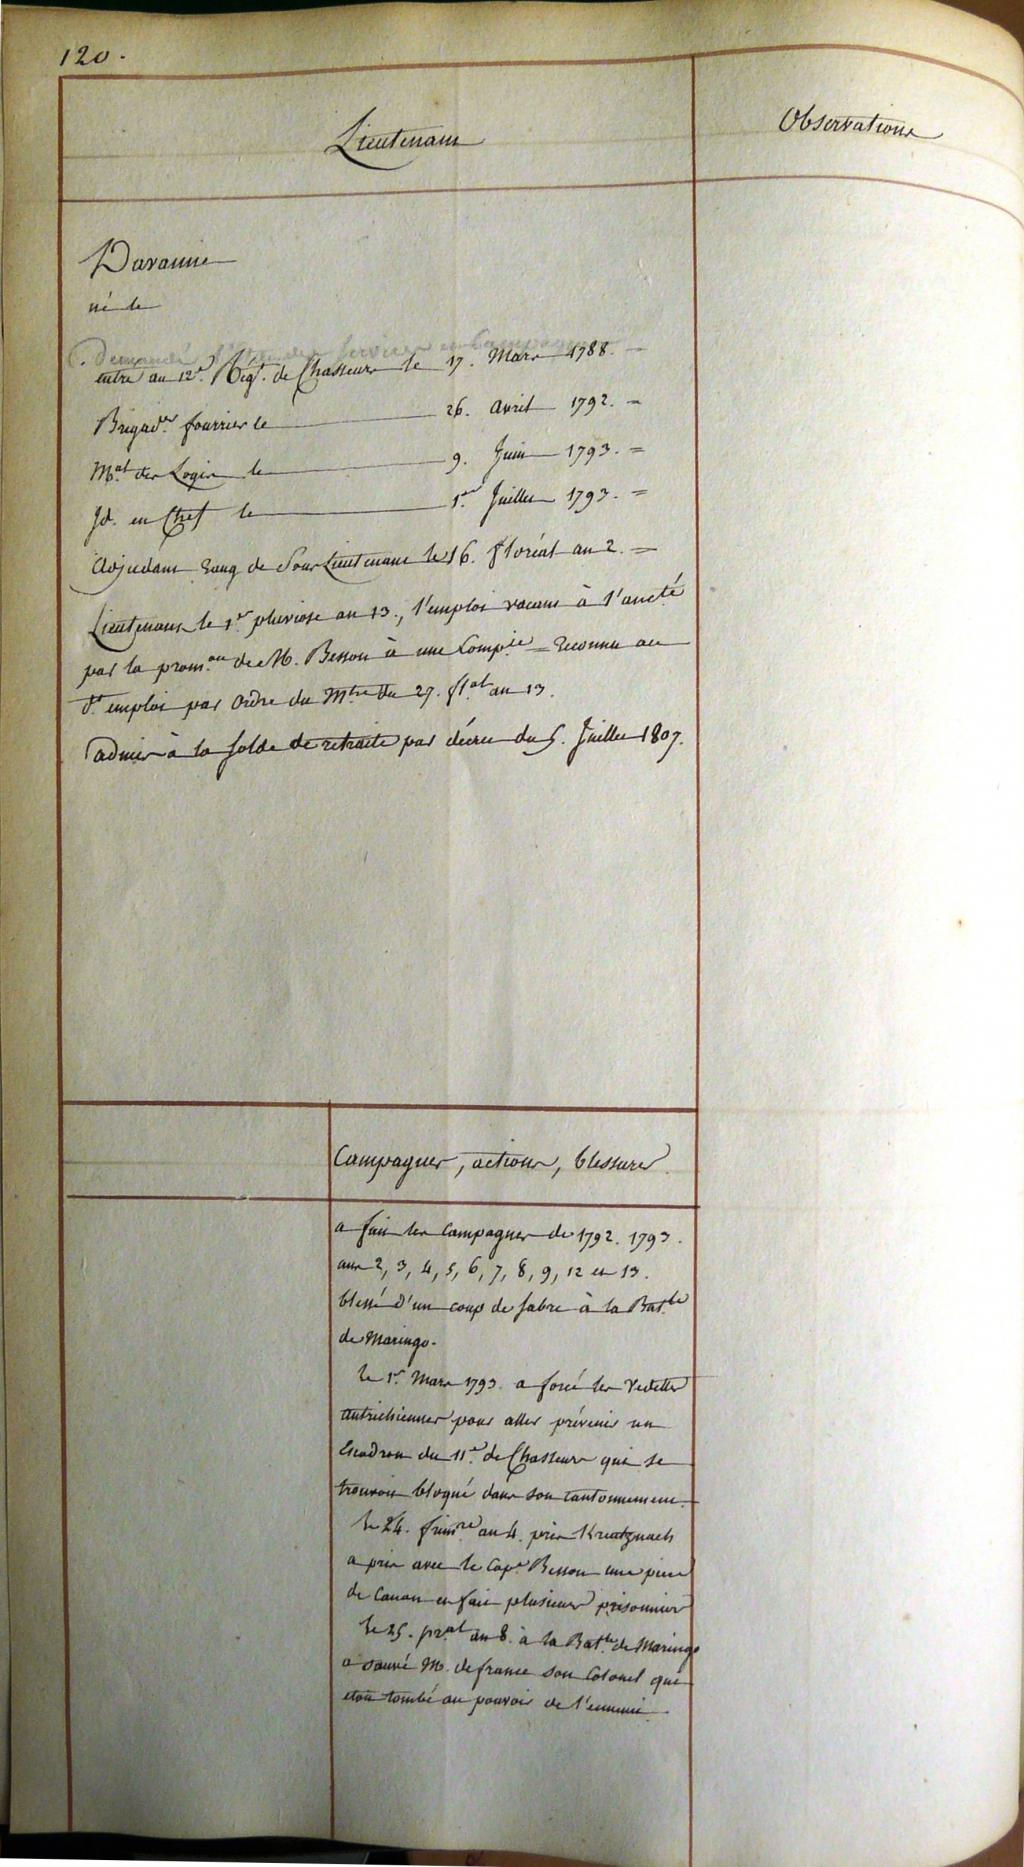 120.
Lieutenant
Observations
Davanne
né le
Demande services en Campagne
entré au 12e. Régt. de Chasseurs le 17. Mars 1788. =
Brigadr. fourrier le 26. Avril 1792. =
Mal. des Logis le 9. Juin 1793. =
Id. en Chef le 1er Juillet 1793. =
Adjudant rang de Sous Lieutenant le 16. floréal an 2. =
Lieutenant le 1er. pluviose an 13., l'emploi vacant à l'ancté
par la promon. de M. Besson à une Compie = Reconnu au
dt. emploi par Ordre du Mtre du 27. flal an 13.
admis à la solde de retraite par décret du 5. Juillet 1807.
Campagnes, actions, blessures.
a fait les Campagnes de 1792. 1793.
ans 2, 3, 4, 5, 6, 7, 8, 9, 12 et 13.
blessé d'un coup de sabre à la Batle
de Maringo.
le 1er. Mars 1793. a forcé les Vedettes
Autrichiennes pour aller prévenir un
Escadron du 11e. de Chasseurs qui se
trouvait bloqué dans son Cantonnement.
le 24. frimre an 4. près Kreutznach
a pris avec le Cape. Besson une pièce
de Canon et fait plusieurs prisonniers
le 25. pral an 8. à la Batle. de Maringo
a sauvé M. defrance son Colonel qui
était tombé au pouvoir de l'ennemi.